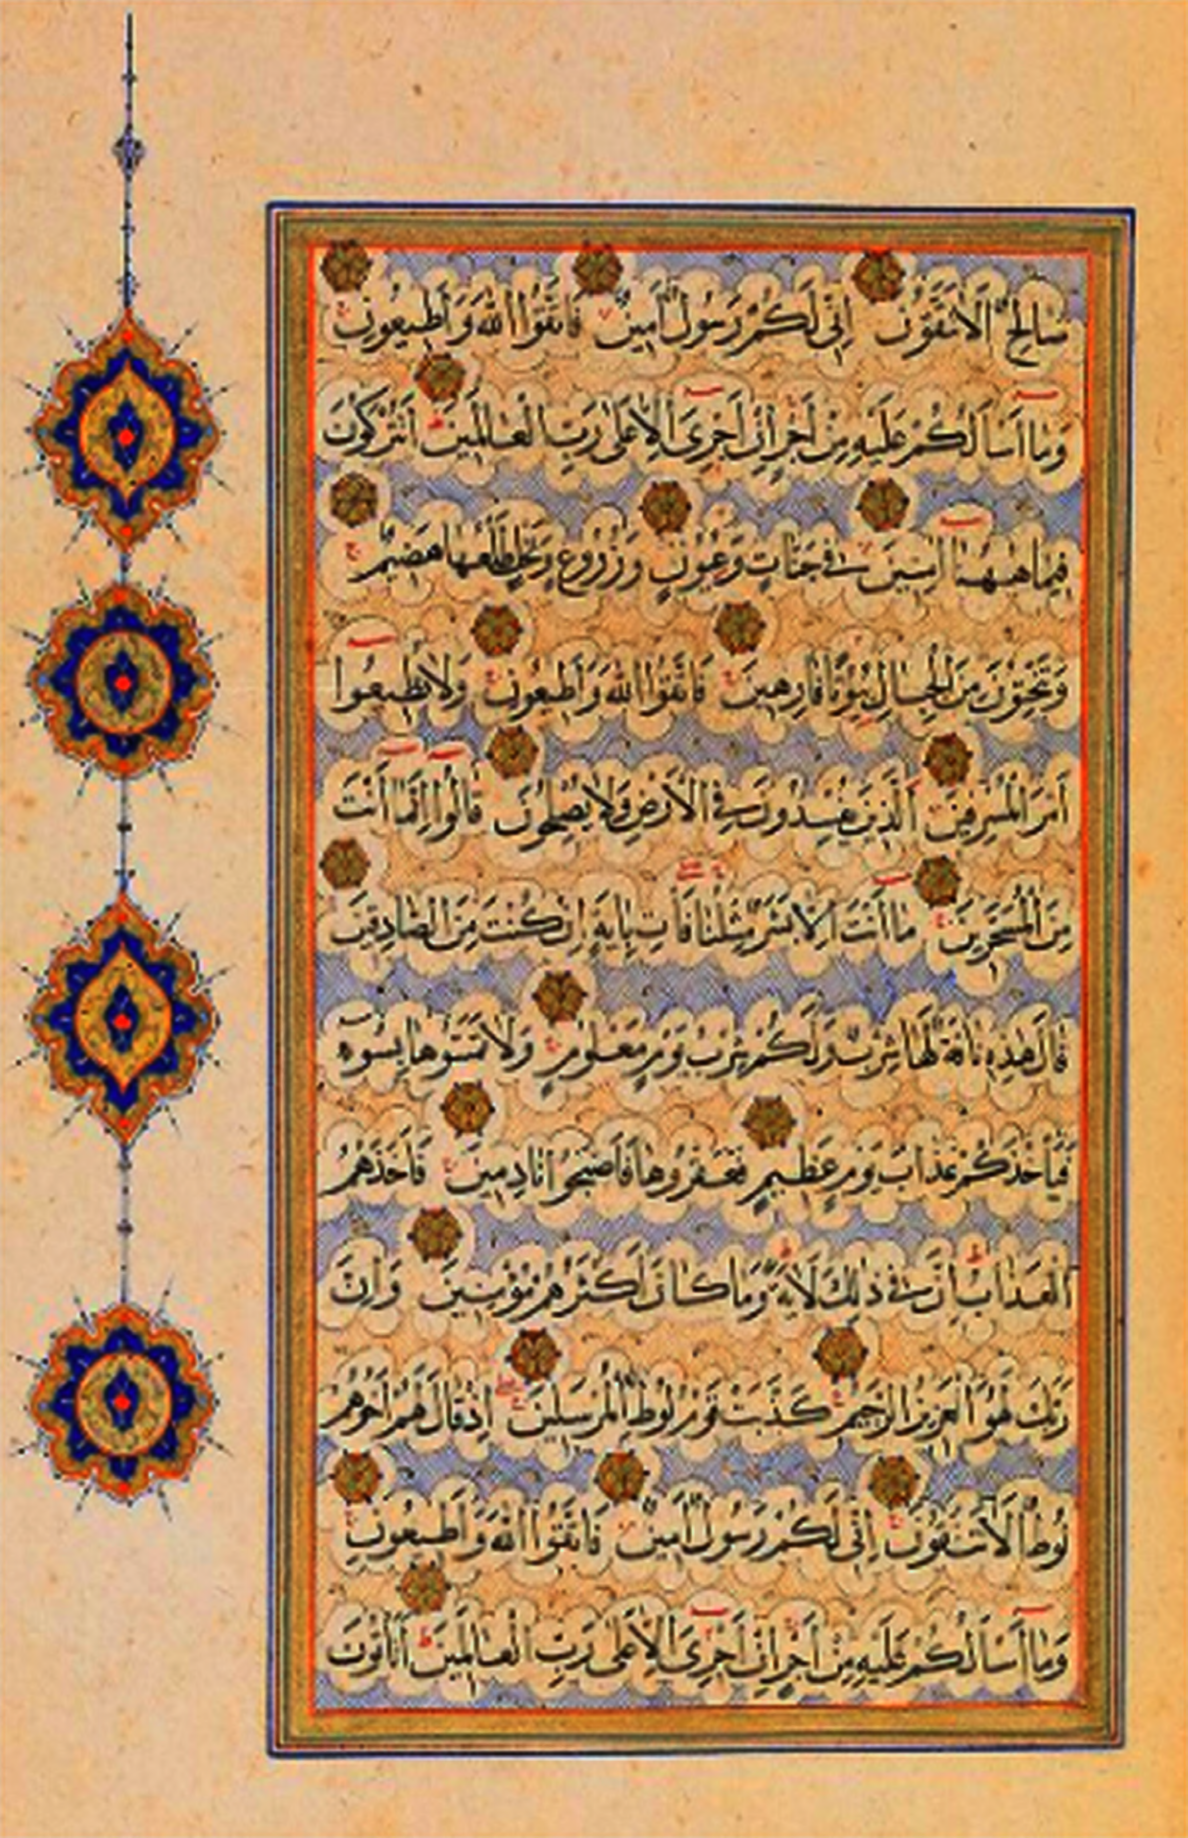 صَالِحٌ أَلَا تَتَّقُونَ إِنِّي لَكُمْ رَسُولٌ أَمِينٌ فَاتَّقُوا اللَّهَ وَأَطِيعُونِ
وَمَا أَسْأَلُكُمْ عَلَيْهِ مِنْ أَجْرٍ إِنْ أَجْرِيَ إِلَّا عَلَى رَبِّ الْعَالَمِينَ أَتُتْرَكُونَ
فِيمَا هَاهُنَا آمِنِينَ فِي جَنَّاتٍ وَعُيُونٍ وَزُرُوعٍ وَنَخْلٍ طَلْعُهَا هَضِيمٌ
وَتَنْحِتُونَ مِنَ الْجِبَالِ بُيُوتًا فَارِهِينَ فَاتَّقُوا اللَّهَ وَأَطِيعُونِ وَلَا تُطِيعُوا
أَمْرَ الْمُسْرِفِينَ الَّذِينَ يُفْسِدُونَ فِي الْأَرْضِ وَلَا يُصْلِحُونَ قَالُوا إِنَّمَا أَنْتَ
مِنَ الْمُسَحَّرِينَ مَا أَنْتَ إِلَّا بَشَرٌ مِثْلُنَا فَأْتِ بِآيَةٍ إِنْ كُنْتَ مِنَ الصَّادِقِينَ
قَالَ هَذِهِ نَاقَةٌ لَهَا شِرْبٌ وَلَكُمْ شِرْبُ يَوْمٍ مَعْلُومٍ وَلَا تَمَسُّوهَا بِسُوءٍ
فَيَأْخُذَكُمْ عَذَابُ يَوْمٍ عَظِيمٍ فَعَقَرُوهَا فَأَصْبَحُوا نَادِمِينَ فَأَخَذَهُمُ
الْعَذَابُ إِنَّ فِي ذَلِكَ لَآيَةً وَمَا كَانَ أَكْثَرُهُمْ مُؤْمِنِينَ وَإِنَّ
رَبَّكَ لَهُوَ الْعَزِيزُ الرَّحِيمُ كَذَّبَتْ قَوْمُ لُوطٍ الْمُرْسَلِينَ إِذْ قَالَ لَهُمْ أَخُوهُمْ
لُوطٌ أَلَا تَتَّقُونَ إِنِّي لَكُمْ رَسُولٌ أَمِينٌ فَاتَّقُوا اللَّهَ وَأَطِيعُونِ
وَمَا أَسْأَلُكُمْ عَلَيْهِ مِنْ أَجْرٍ إِنْ أَجْرِيَ إِلَّا عَلَى رَبِّ الْعَالَمِينَ أَتَأْتُونَ